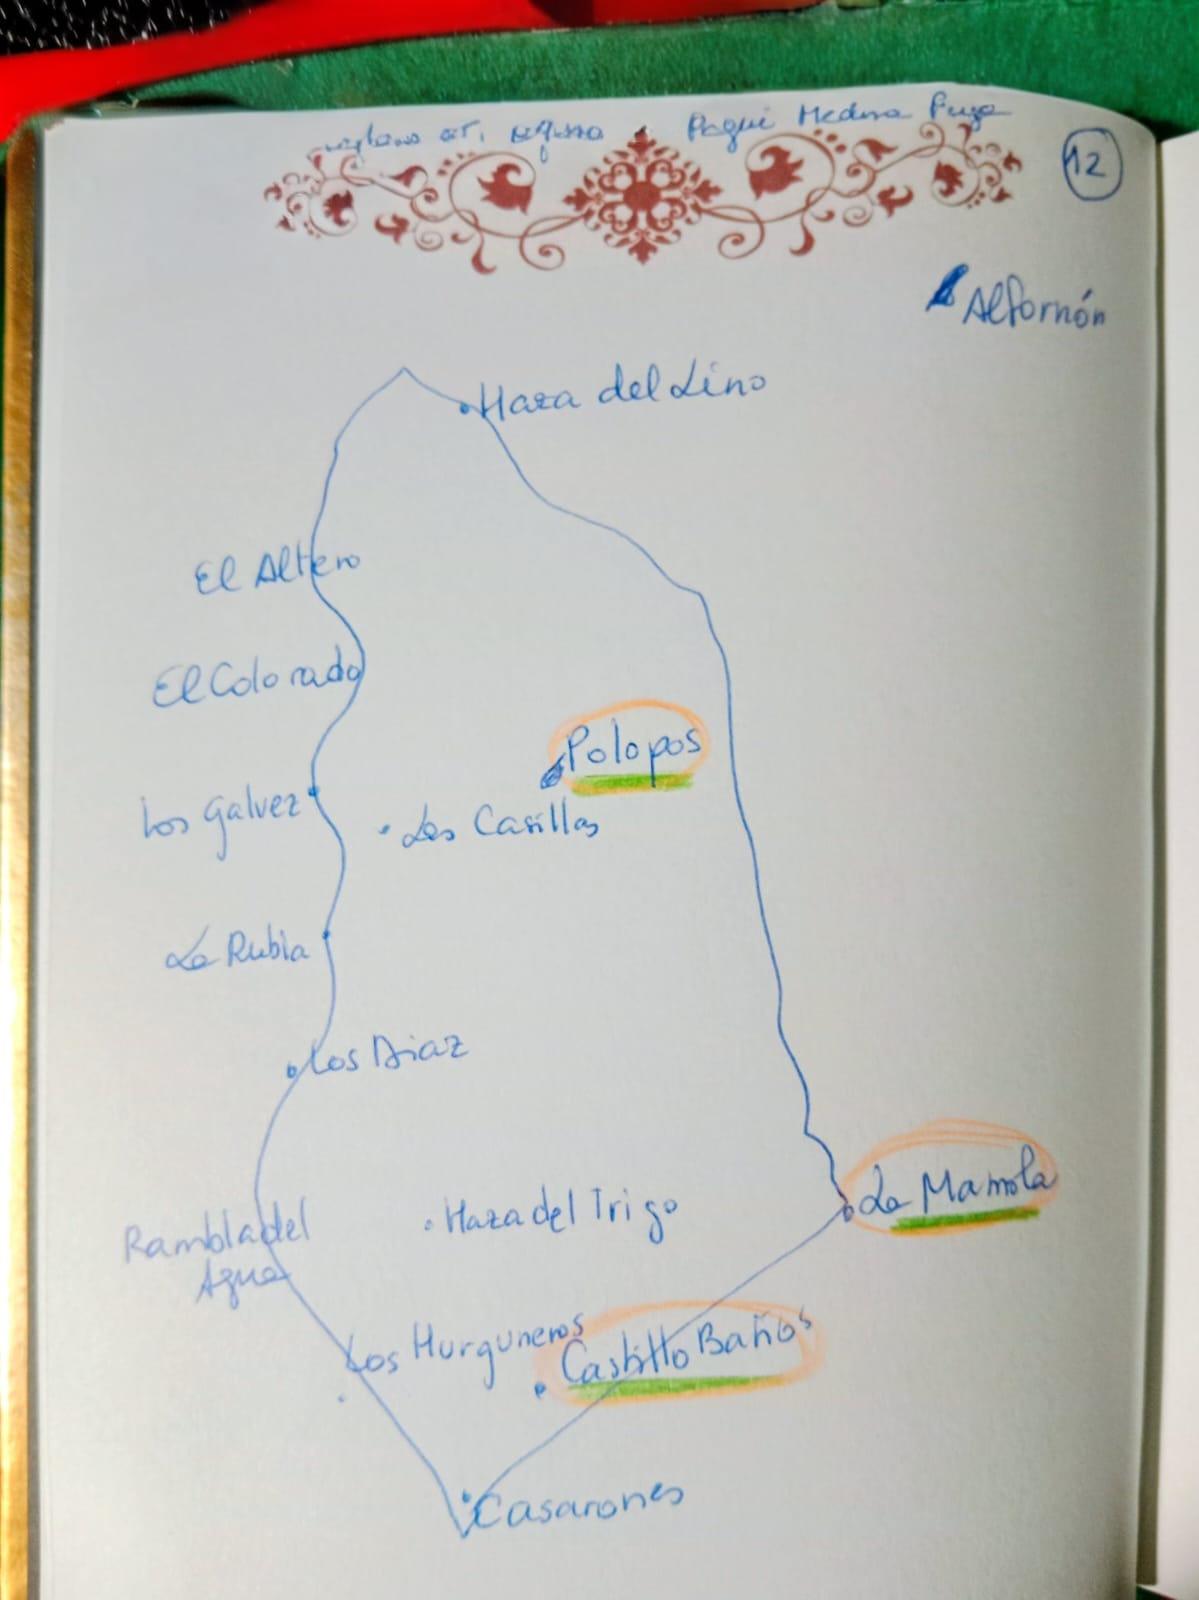 Paqui Medina Puga
12
Alfornón
Haza del Lino
El Altero
El Colorado
Polopos
Los Galvez
Las Casillas
La Rubia
Los Diaz
La Mamola
Haza del Trigo
Rambla del
Agua
Los Hurguneros
Castillo Baños
Casarones